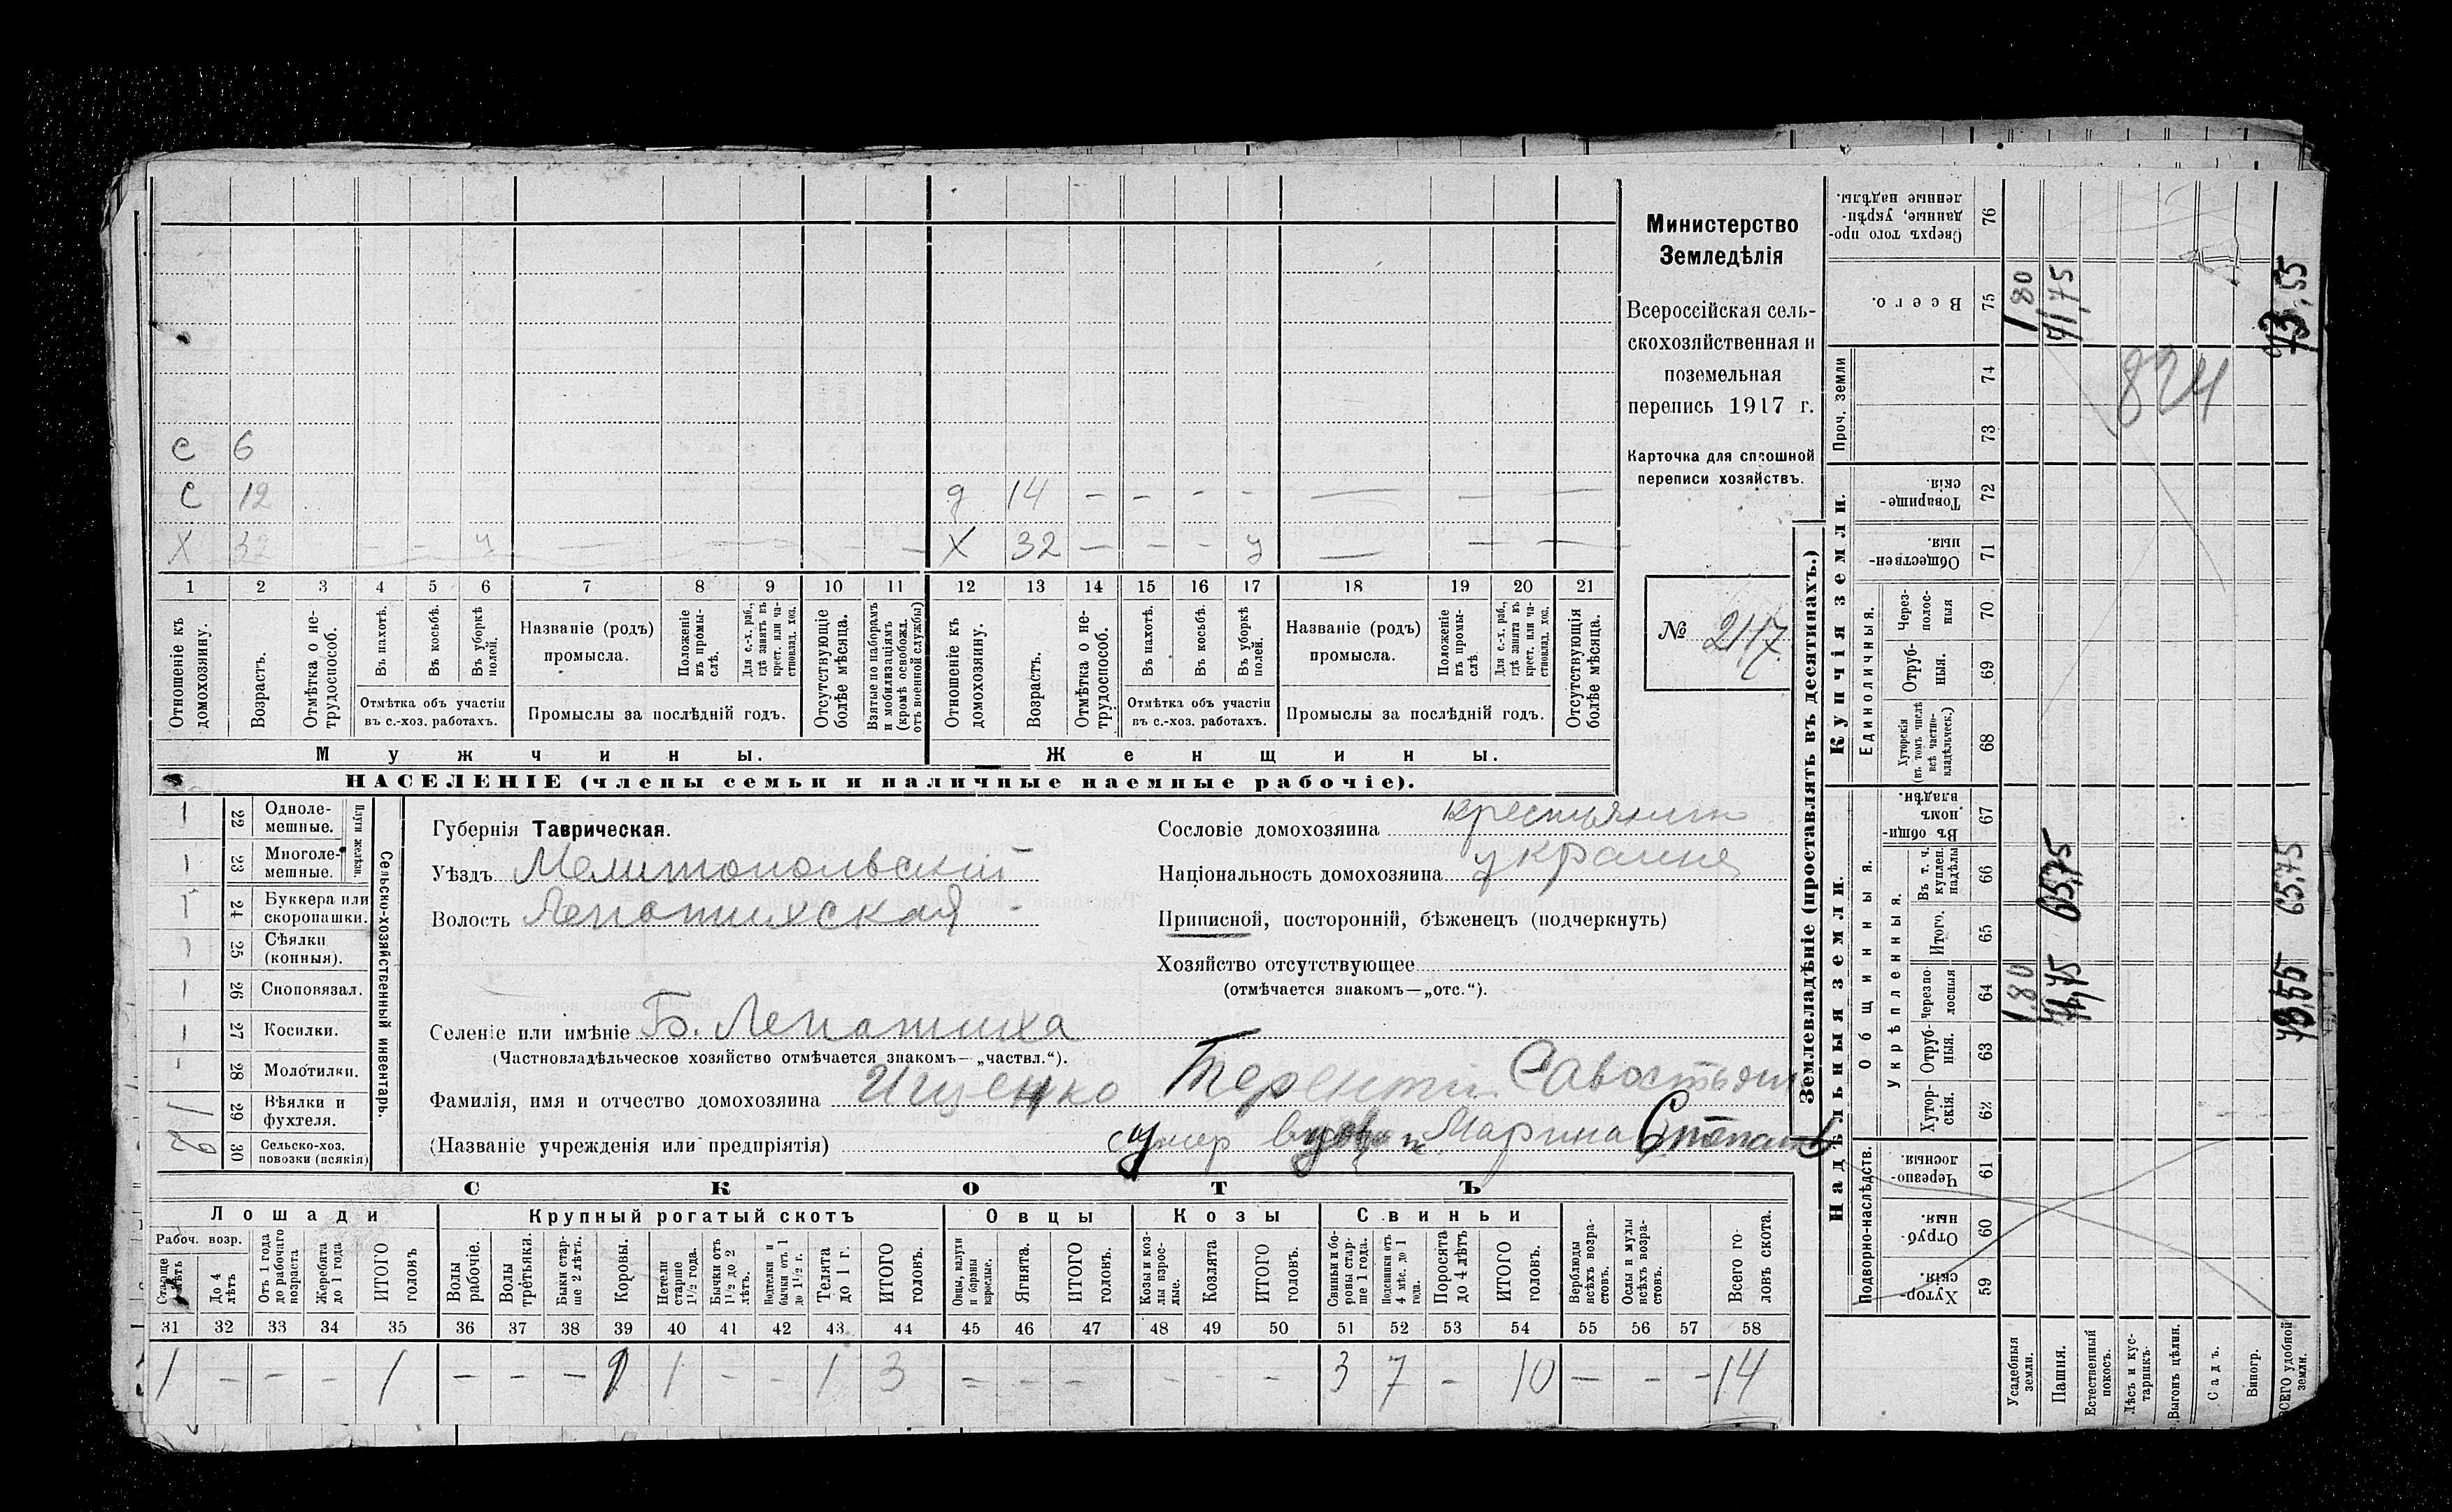 с 6
с 12 д 14 — — — — — — —
х 32 — — у — — — — — х 32 — — — у — — —
1 2 3 4 5 6 7 8 9 10 11 12 13 14 15 16 17 18 19 20 21
Отношеніе къ домохозяину.
Возрастъ.
Отмѣтка о не-
трудоспособ.
Въ пахотѣ.
Въ косьбѣ.
Въ уборкѣ полей.
Отмѣтка объ участіи
въ с.-хоз. работахъ.
Названіе (родъ)
промысла.
Положеніе въ промы-
слѣ.
Для с.-х. раб., гдѣ занятъ въ крест. или ча-
стновлад. хоз.
Промыслы за послѣдній годъ.
Отсутствующіе болѣе мѣсяца.
Взятые по наборамъ и мобилизаціямъ (кромѣ освобожд. отъ военной службы)
Отношеніе къ домохозяину.
Возрастъ.
Отмѣтка о не-
трудоспособ.
Въ пахотѣ.
Въ косьбѣ.
Въ уборкѣ полей.
Отмѣтка объ участіи
въ с.-хоз. работахъ.
Названіе (родъ)
промысла.
Положеніе въ промы-
слѣ
Для с.-х. раб., гдѣ занята въ крест. или ча-
стновлад. хоз.
Промыслы за послѣдній годъ.
Отсутствующія болѣе мѣсяца.
Мужчины.
Женщины.
НАСЕЛЕНІЕ (члены семьи и наличные наемные рабочіе).
Министерство
Земледѣлія
Всероссійская сель-
скохозяйственная и
поземельная
перепись 1917 г.
Карточка для сплошной
переписи хозяйствъ.
№ 2117
Сельско-хозяйственный инвентарь.
Плуги желѣзн.
22 Одноле-
мешные.
23 Многоле-
мешные.
24 Буккера или
скоропашки.
25 Сѣялки
(конныя).
26 Сноповязал.
27 Косилки.
28 Молотилки.
29 Вѣялки и
фухтеля.
30 Сельско-хоз.
повозки (всякія)
Губернія Таврическая.
Уѣздъ Мелитопольскій
Волость Лепатихская
Селеніе или имѣніе Б. Лепатиха
(Частновладѣльческое хозяйство отмѣчается знакомъ—„частвл.“).
Сословіе домохозяина крестьянин
Національность домохозяина украине
Приписной, посторонній, бѣженецъ (подчеркнуть)
Хозяйство отсутствующее
(отмѣчается знакомъ—„отс.“).
Фамилія, имя и отчество домохозяина Ищенко Терентій Савостьян
(Названіе учрежденія или предпріятія) умер вдова Марина Степан
СКОТЪ
Лошади
Рабоч. возр.
Старше 4 лѣтъ
До 4 лѣтъ
Отъ 1 года до рабочаго возраста
Жеребята до 1 года
ИТОГО головъ
Крупный рогатый скотъ
Волы рабочіе.
Волы третьяки.
Быки стар-
ше 2 лѣтъ.
Коровы.
Нетели старше 1½ года.
Бычки отъ 1½ до 2 лѣтъ.
Нетелки и бычки отъ 1 до 1½ г.
Телята до 1 г.
ИТОГО головъ.
Овцы
Овцы, валухи и бараны взрослые.
Ягнята.
ИТОГО головъ.
Козы
Козы и коз-
лы взрос-
лые.
Козлята
ИТОГО головъ.
Свиньи
Свиньи и бо-
ровы стар-
ше 1 года.
Подсвинки отъ 4 мѣс. до 1 года.
Поросята до 4 лѣтъ
ИТОГО головъ.
Верблюды всѣхъ возра-
стовъ.
Ослы и мулы всѣхъ возра-
стовъ.
Всего го-
ловъ скота.
31 32 33 34 35 36 37 38 39 40 41 42 43 44 45 46 47 48 49 50 51 52 53 54 55 56 57 58
1 — — — 1 — — — 1 1 — — 1 3 — — — — — — 3 7 — 10 — — — 14
Землевладѣніе (проставлять въ десятинахъ.)
Купчія земли.
Надѣльныя земли.
Сверхъ того про-
данные, укрѣп-
ленные надѣлы. 76
Всего. 75
Проч. земли
74
73
Товарище-
скія. 72
Обществен-
ныя. 71
Единоличныя.
Через-
полос-
ныя 70
Отруб-
ныя. 69
Хуторскія (въ томъ числѣ всѣ частно-
владѣльческ.) 68
Общинныя.
Въ общи-
номъ владѣн. 67
Укрѣпленныя.
Въ т. ч. куплен. надѣлы 66
Итого. 65
Черезпо-
лосныя 64
Отруб-
ныя. 63
Хутор-
скія. 62
Подворно-наслѣдств.
Черезпо-
лосныя. 61
Отруб-
ныя. 60
Хутор-
скія. 59
Усадебныя земли. 1.80 1 80
Пашня. 65,75 41,75
Естественный покосъ.
Лѣсъ и кус-
тарникъ.
Выгонъ цѣлин.
Садъ.
Виногр.
ВСЕГО удобной земли. 65,75 43,55
824